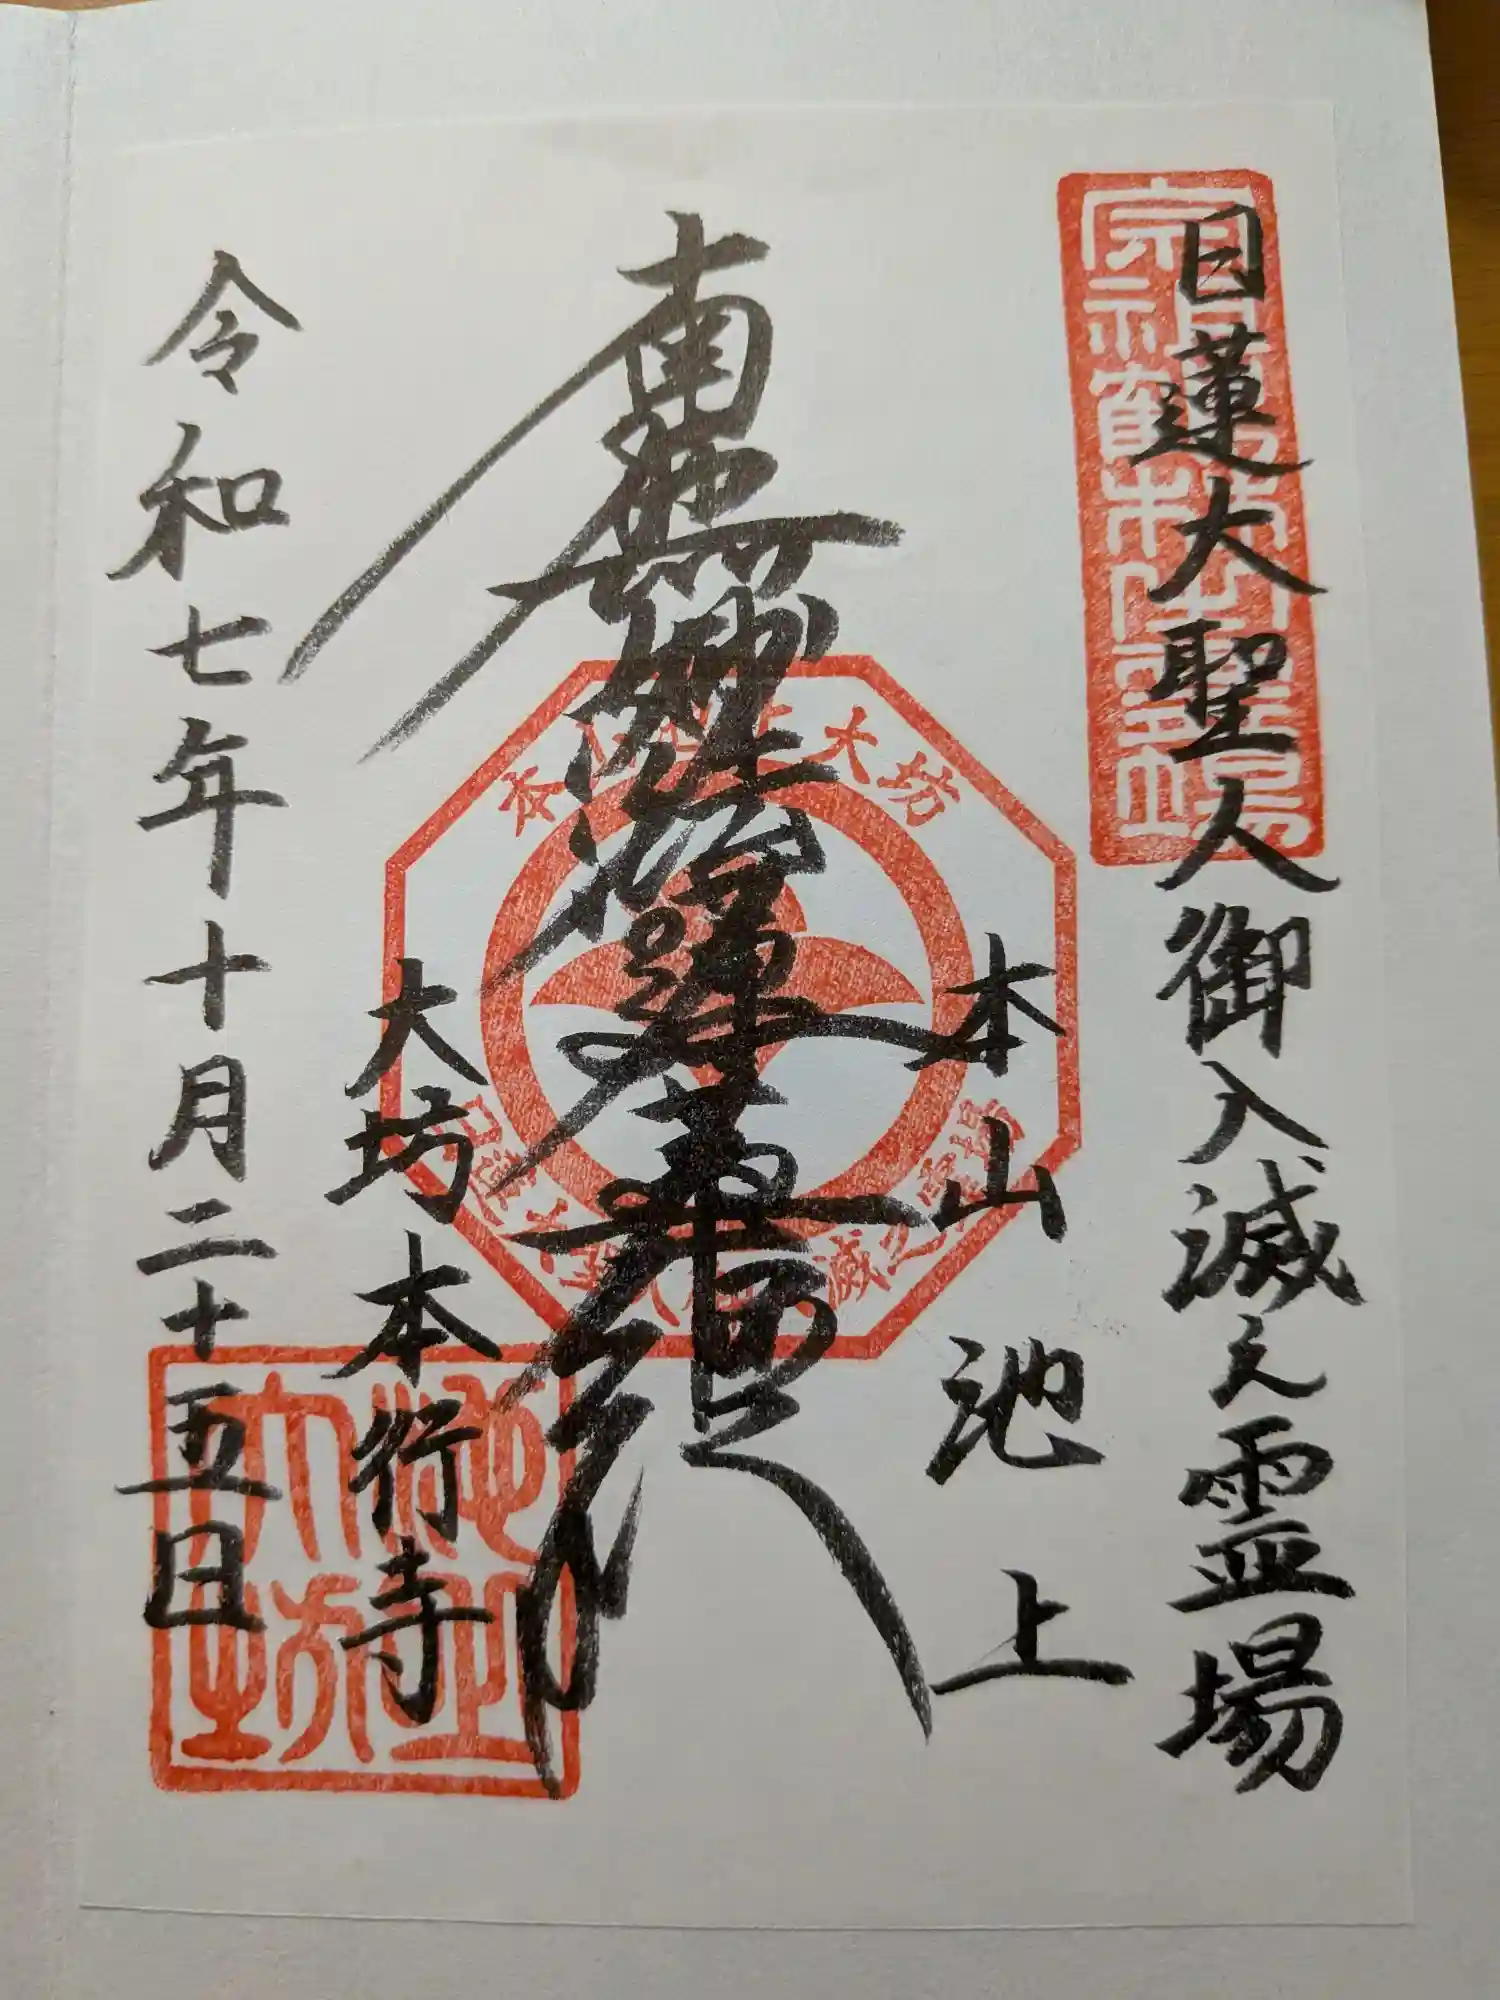 日蓮大聖人御入滅之霊場
本山 池上
南無妙法蓮華経
大坊本行寺
令和七年十月二十五日
本山池上大坊